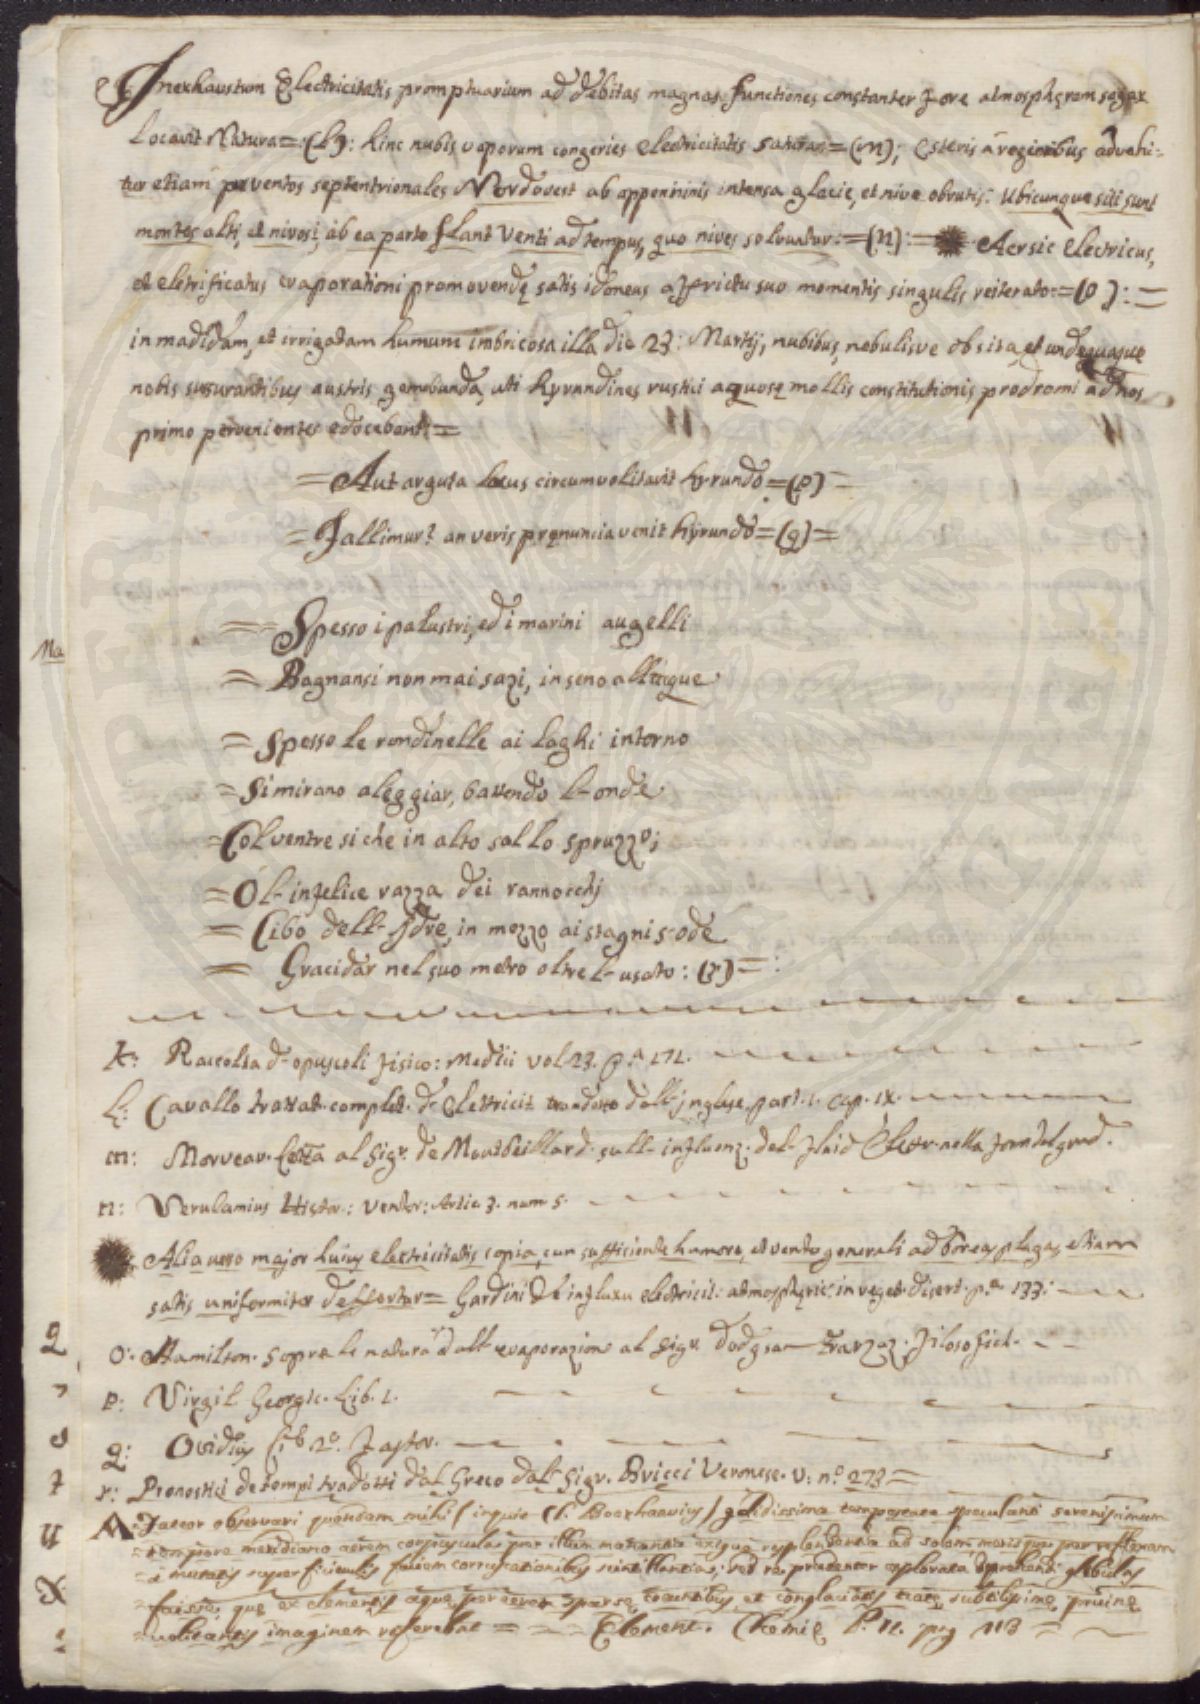 Inexhaustum Electricitatis promptuarium ad debitas magnas functiones constanter fove atmospheram sagax
Locavit Natura=(L): hinc nubis vaporum congeries electricitatis saturas=(m); Esteris a regionibus advehi-
tur etiam per ventos septentrionales Nordovest ab appenninis intensa glacie, et nive obrutis: Ubicunque siti sunt
montes alti, et nivosi, ab ea parte flant Venti ad tempus, quo nives solvuntur:=(n):= Aer sic Electricus,
et eletrificatus evaporationi promovendę satis idoneus affrictu suo momentis singulis reiterato:=(o):=
in madidam, et irrigatam humum imbricosa illa die 23: Martij, nubibus, nebulisve obsita, et undequaque
nobis susurantibus austris gemebunda, uti hyrundines rustici aquosę mollis constitutionis prodromi ad nos
primo pervenientes edocebant:=
=Aut arguta lacus circumvolitavit hyrundo=(p)=
=Fallimur? an veris prenuncia venit hyrundo=(q)=
== Spesso i palustri, ed i marini augelli
Ma
= Bagnansi non mai sazi, in seno all'acque
= Spesso le rondinelle ai laghi intorno
= Si mirano aleggiar, battendo l'onde
= Col ventre si che in alto sal lo spruzzo;
= O l'infelice razza dei rannocchj
= Cibo dell'Idre, in mezzo ai stagni s'ode
= Gracidar nel suo metro oltre l'usato: (r)=:
k: Raccolta d'opuscoli fisico: medici vol 23. p.ª 171.
L: Cavallo trattat. complet. d'Elettricit. tradotto dall'inglese. part. 1. cap. IX.
m: Morveau. Letta al Sigr. de Montbeillard. sull'influenz. del fluid Elettr. nella
n: Verulamius Histor.: Ventor: Artic 3. num 5.
Alia vero major huius electricitatis copia, cum sufficiente humore, et vento generali ad boreas plagas etiam
satis uniformiter defertur= Gardini De influxu electricit: atmospheric: in veget. disert. p.ª 133:
o: Hamilton. sopra le natura dell'evaporazione al Sigr. Filosofich.
p: Virgil Georgic. Lib. 1.
q: Ovidius Lib 2º. Fastor.
r: Pronostici de tempi tradotti dal Greco dal Sigr. Bricci Veronese. V: n.º 273=
A Fateor observari quondam mihi (inquie Cl. Boerhaavius) gelidissima tempestate speculanti serenissimum
=tempore meridiano aerem corpuscula per illum motantia exigua resplendentia ad solem
=i mutatis superficiculis faciem corruscationibus scintillantias; sed re prudenter explorata deprehendi globulas
=fuisse, quę ex elementis aquę per aerem sparsę coeuntibus, et conglaciatis natę, subtilissimę pruinę
=volitantis imaginem referebat = Element. Chemię P. II. pag 113 =